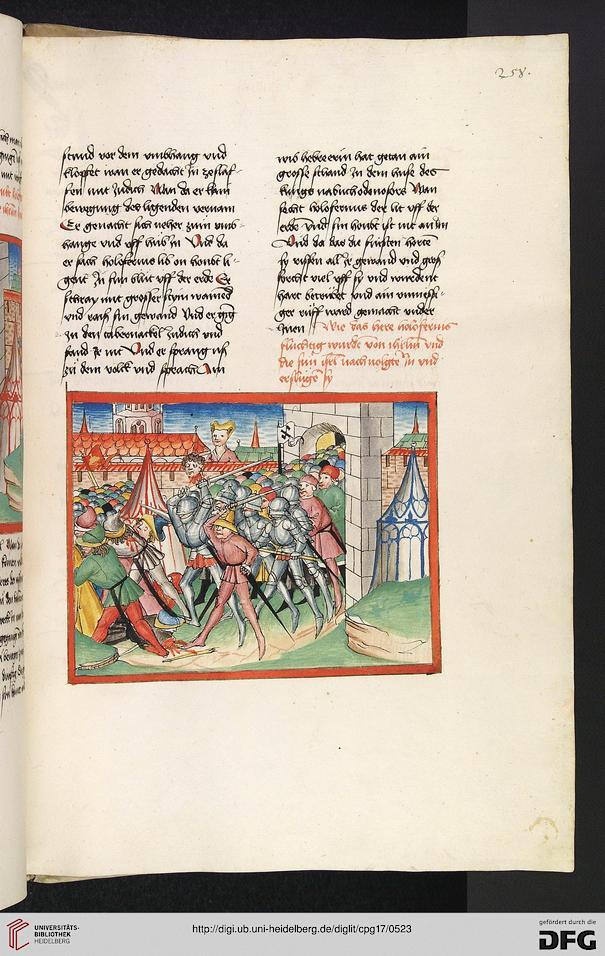 258.
stund vor dem umbhang und
klopfet wan er gedacht in zeslaf-
fen mit Judich Wan da er kain
bewegung des ligenden vernam
Er genachet sich neher zum umb-
hange und uff hub in Und da
er sach holofernus lib on houbt li-
gent In sim blut uff der erde Er
schray mit grosser stym wainend
und rais sin gewand Und er ging
zu den tabernackel Judich und
fand Je nit Und er sprang us
zu dem volk und sprach Ain
wib hebreerin hat getan ain
grosse schand zu dem huse des
kungs nabuchodonosors Wan
secht holofernus der lit uff der
erde Und sin houbt ist nit an im
Und da das die fursten horten
sy rissen all Je gewand und gros
vorcht viel uff sy und wurdent
hart betrubt und ain unmess-
ger ruff ward gemacht under
Jnen Wie das here holofernus
fluchtig wurde von und
die sun isrl nach volgte in und
erslugen sy
UNIVERSITÄTS-
BIBLIOTHEK
HEIDELBERG
http://digi.ub.uni-heidelberg.de/diglit/cpg17/0523
gefördert durch die
DFG